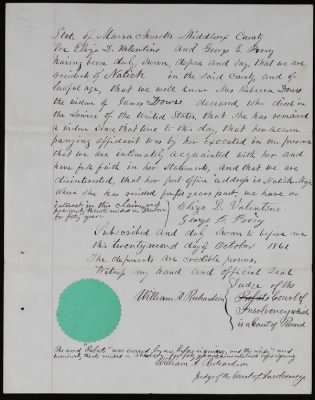 State of Massachusetts Middlesex County
We Eliza D. Valentine and George E. Perry
having been duly sworn, depose and say, that we are
residents of Natick in the said County and of
lawful age, that we well knew Mrs Rebecca Dowse
the widow of James Dowse deceased, who died in
the Service of the United States, that she has remained
a widow since that time to this day, that her accom
panying affidavit was by her executed in our presence
that we are intimately acquainted with her and
have full faith in her statements, and that we are
disinterested, that her post office address is Natick Mass
where she has resided years past, we have no
interest in this claim and
previously thereto resided in
for fifty years.
Eliza D. Valentine
George E. Perry
Subscribed and duly sworn to before me
this twenty second day of October 1861
The deponents are credible persons,
Witness my hand and official Seal
William A. Richardson
Judge of the
Probate Court of
Insolvency which
is a Court of Record
The word "Probate" was erased by me before signing, and the words " and
previously thereto resided in for fifty years" before signing
William A. Richardson
Judge of the Court of Insolvency